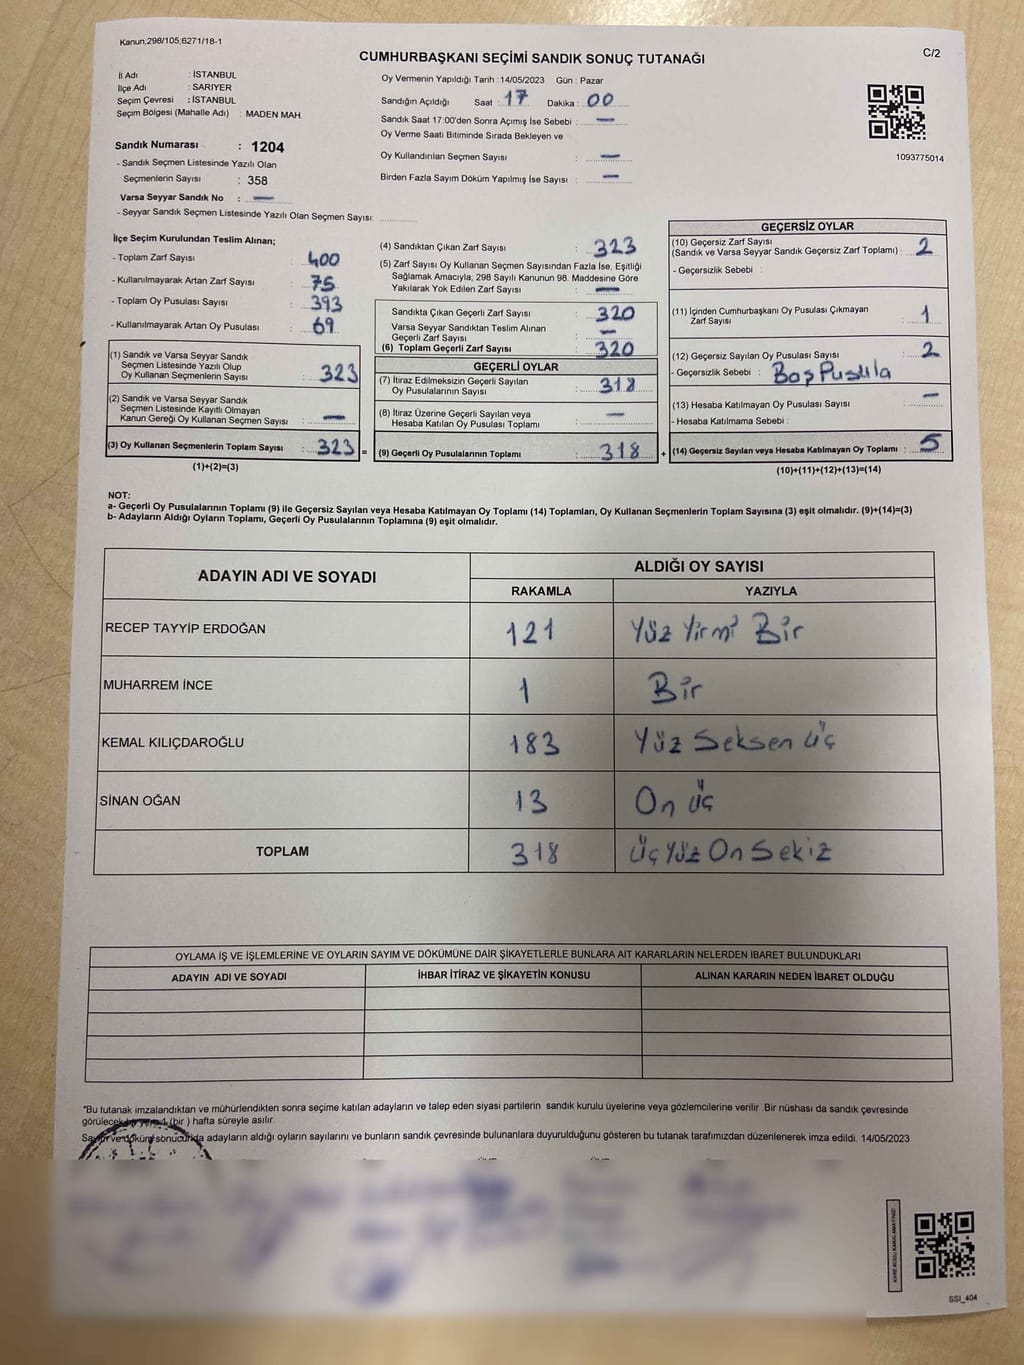 Kanun,298/105,6271/18-1
C/2
CUMHURBAŞKANI SEÇİMİ SANDIK SONUÇ TUTANAĞI
İl Adı : İSTANBUL
İlçe Adı : SARIYER
Seçim Çevresi : İSTANBUL
Seçim Bölgesi (Mahalle Adı) : MADEN MAH.
Sandık Numarası : 1204
- Sandık Seçmen Listesinde Yazılı Olan
Seçmenlerin Sayısı : 358
Varsa Seyyar Sandık No : —
- Seyyar Sandık Seçmen Listesinde Yazılı Olan Seçmen Sayısı:
Oy Vermenin Yapıldığı Tarih : 14/05/2023 Gün : Pazar
Sandığın Açıldığı Saat : 17 Dakika : 00
Sandık Saat 17:00'den Sonra Açımış İse Sebebi : —
Oy Verme Saati Bitiminde Sırada Bekleyen ve
Oy Kullandırılan Seçmen Sayısı : —
Birden Fazla Sayım Döküm Yapılmış İse Sayısı : —
1093775014
İlçe Seçim Kurulundan Teslim Alınan;
- Toplam Zarf Sayısı : 400
- Kullanılmayarak Artan Zarf Sayısı : 75
- Toplam Oy Pusulası Sayısı : 393
- Kullanılmayarak Artan Oy Pusulası : 69
(1) Sandık ve Varsa Seyyar Sandık
Seçmen Listesinde Yazılı Olup
Oy Kullanan Seçmenlerin Sayısı : 323
(2) Sandık ve Varsa Seyyar Sandık
Seçmen Listesinde Kayıtlı Olmayan
Kanun Gereği Oy Kullanan Seçmen Sayısı : —
(3) Oy Kullanan Seçmenlerin Toplam Sayısı : 323 =
(1)+(2)=(3)
(4) Sandıktan Çıkan Zarf Sayısı : 323
(5) Zarf Sayısı Oy Kullanan Seçmen Sayısından Fazla İse, Eşitliği
Sağlamak Amacıyla; 298 Sayılı Kanunun 98. Maddesine Göre
Yakılarak Yok Edilen Zarf Sayısı : —
Sandıkta Çıkan Geçerli Zarf Sayısı : 320
Varsa Seyyar Sandıktan Teslim Alınan
Geçerli Zarf Sayısı : —
(6) Toplam Geçerli Zarf Sayısı : 320
GEÇERLİ OYLAR
(7) İtiraz Edilmeksizin Geçerli Sayılan
Oy Pusulalarının Sayısı : 318
(8) İtiraz Üzerine Geçerli Sayılan veya
Hesaba Katılan Oy Pusulası Toplamı : —
(9) Geçerli Oy Pusulalarının Toplamı : 318 +
GEÇERSİZ OYLAR
(10) Geçersiz Zarf Sayısı
(Sandık ve Varsa Seyyar Sandık Geçersiz Zarf Toplamı) : 2
- Geçersizlik Sebebi :
(11) İçinden Cumhurbaşkanı Oy Pusulası Çıkmayan
Zarf Sayısı : 1
(12) Geçersiz Sayılan Oy Pusulası Sayısı : 2
- Geçersizlik Sebebi : Boş Pusula
(13) Hesaba Katılmayan Oy Pusulası Sayısı : —
- Hesaba Katılmama Sebebi :
(14) Geçersiz Sayılan veya Hesaba Katılmayan Oy Toplamı : 5
(10)+(11)+(12)+(13)=(14)
NOT:
a- Geçerli Oy Pusulalarının Toplamı (9) ile Geçersiz Sayılan veya Hesaba Katılmayan Oy Toplamı (14) Toplamları, Oy Kullanan Seçmenlerin Toplam Sayısına (3) eşit olmalıdır. (9)+(14)=(3)
b- Adayların Aldığı Oyların Toplamı, Geçerli Oy Pusulalarının Toplamına (9) eşit olmalıdır.
ADAYIN ADI VE SOYADI ALDIĞI OY SAYISI
RAKAMLA YAZIYLA
RECEP TAYYİP ERDOĞAN 121 Yüz Yirmi Bir
MUHARREM İNCE 1 Bir
KEMAL KILIÇDAROĞLU 183 Yüz Seksen Üç
SİNAN OĞAN 13 On üç
TOPLAM 318 Üç Yüz On Sekiz
OYLAMA İŞ VE İŞLEMLERİNE VE OYLARIN SAYIM VE DÖKÜMÜNE DAİR ŞİKAYETLERLE BUNLARA AİT KARARLARIN NELERDEN İBARET BULUNDUKLARI
ADAYIN ADI VE SOYADI İHBAR İTİRAZ VE ŞİKAYETİN KONUSU ALINAN KARARIN NEDEN İBARET OLDUĞU
*Bu tutanak imzalandıktan ve mühürlendikten sonra seçime katılan adayların ve talep eden siyasi partilerin sandık kurulu üyelerine veya gözlemcilerine verilir .Bir nüshası da sandık çevresinde
görülecek bir yere 1 (bir ) hafta süreyle asılır.
Sayım ve döküm sonucunda adayların aldığı oyların sayılarını ve bunların sandık çevresinde bulunanlara duyurulduğunu gösteren bu tutanak tarafımızdan düzenlenerek imza edildi. 14/05/2023
SSI_404